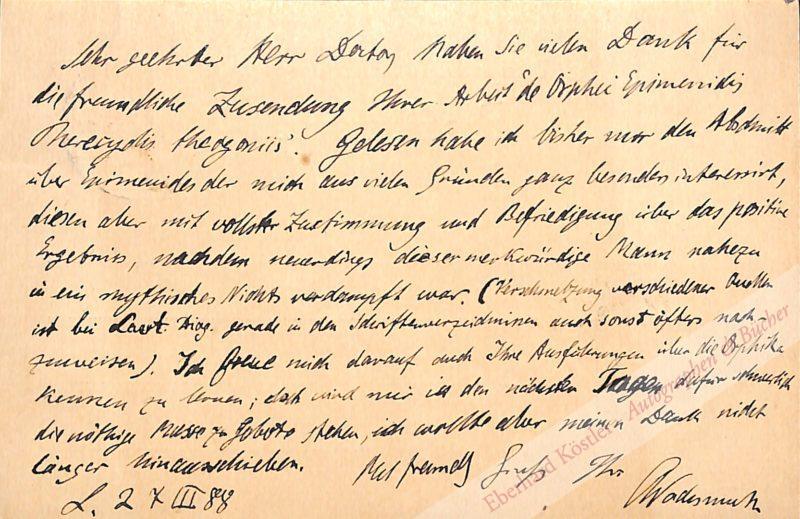 Sehr geehrter Herr Doctor, Haben Sie vielen Dank für
die freundliche Zusendung Ihrer Arbeit 'de Orphei Epimenidis
Pherecydis theogoniis'. Gelesen habe ich bisher nur den Abschnitt
über Epimenides der mich aus vielen Gründen ganz besonders interessirt,
diesen aber mit vollster Zustimmung und Befriedigung über das positive
Ergebniss, nachdem neuerdings dieser merkwürdige Mann nahezu
in ein mythisches Nichts verdampft war. (Verschmelzung verschiedener Quellen
ist bei Laert. Diog. gerade in den Schriftenverzeichnissen auch sonst öfters nach-
zuweisen). Ich freue mich darauf auch Ihre Ausführungen über die Orphika
kennen zu lernen; wird mir in den nächsten Tagen dafür schwerlich
die nöthige Musse zu Gebote stehen, ich wollte aber meinen Dank nicht
länger hinausschieben. Mit freundl Gruss Ihr
L. 27 III 88 CWachsmuth
Eberhard Köstler Autographen & Bücher